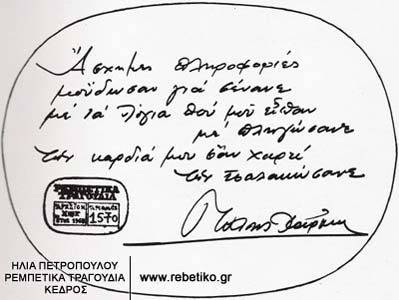 Ἄσχημες πληροφορίες
μοῦδωσαν γιά σένανε
μέ τά λόγια πού μοῦ εἶπαν
μέ πληγώσανε
τήν καρδιά μου σάν χαρτί
τήν τσαλακώσανε
ΡΕΜΠΕΤΙΚΑ
ΤΡΑΓΟΥΔΙΑ
1570
ΗΛΙΑ ΠΕΤΡΟΠΟΥΛΟΥ
ΡΕΜΠΕΤΙΚΑ ΤΡΑΓΟΥΔΙΑ
ΚΕΔΡΟΣ
www.rebetiko.gr